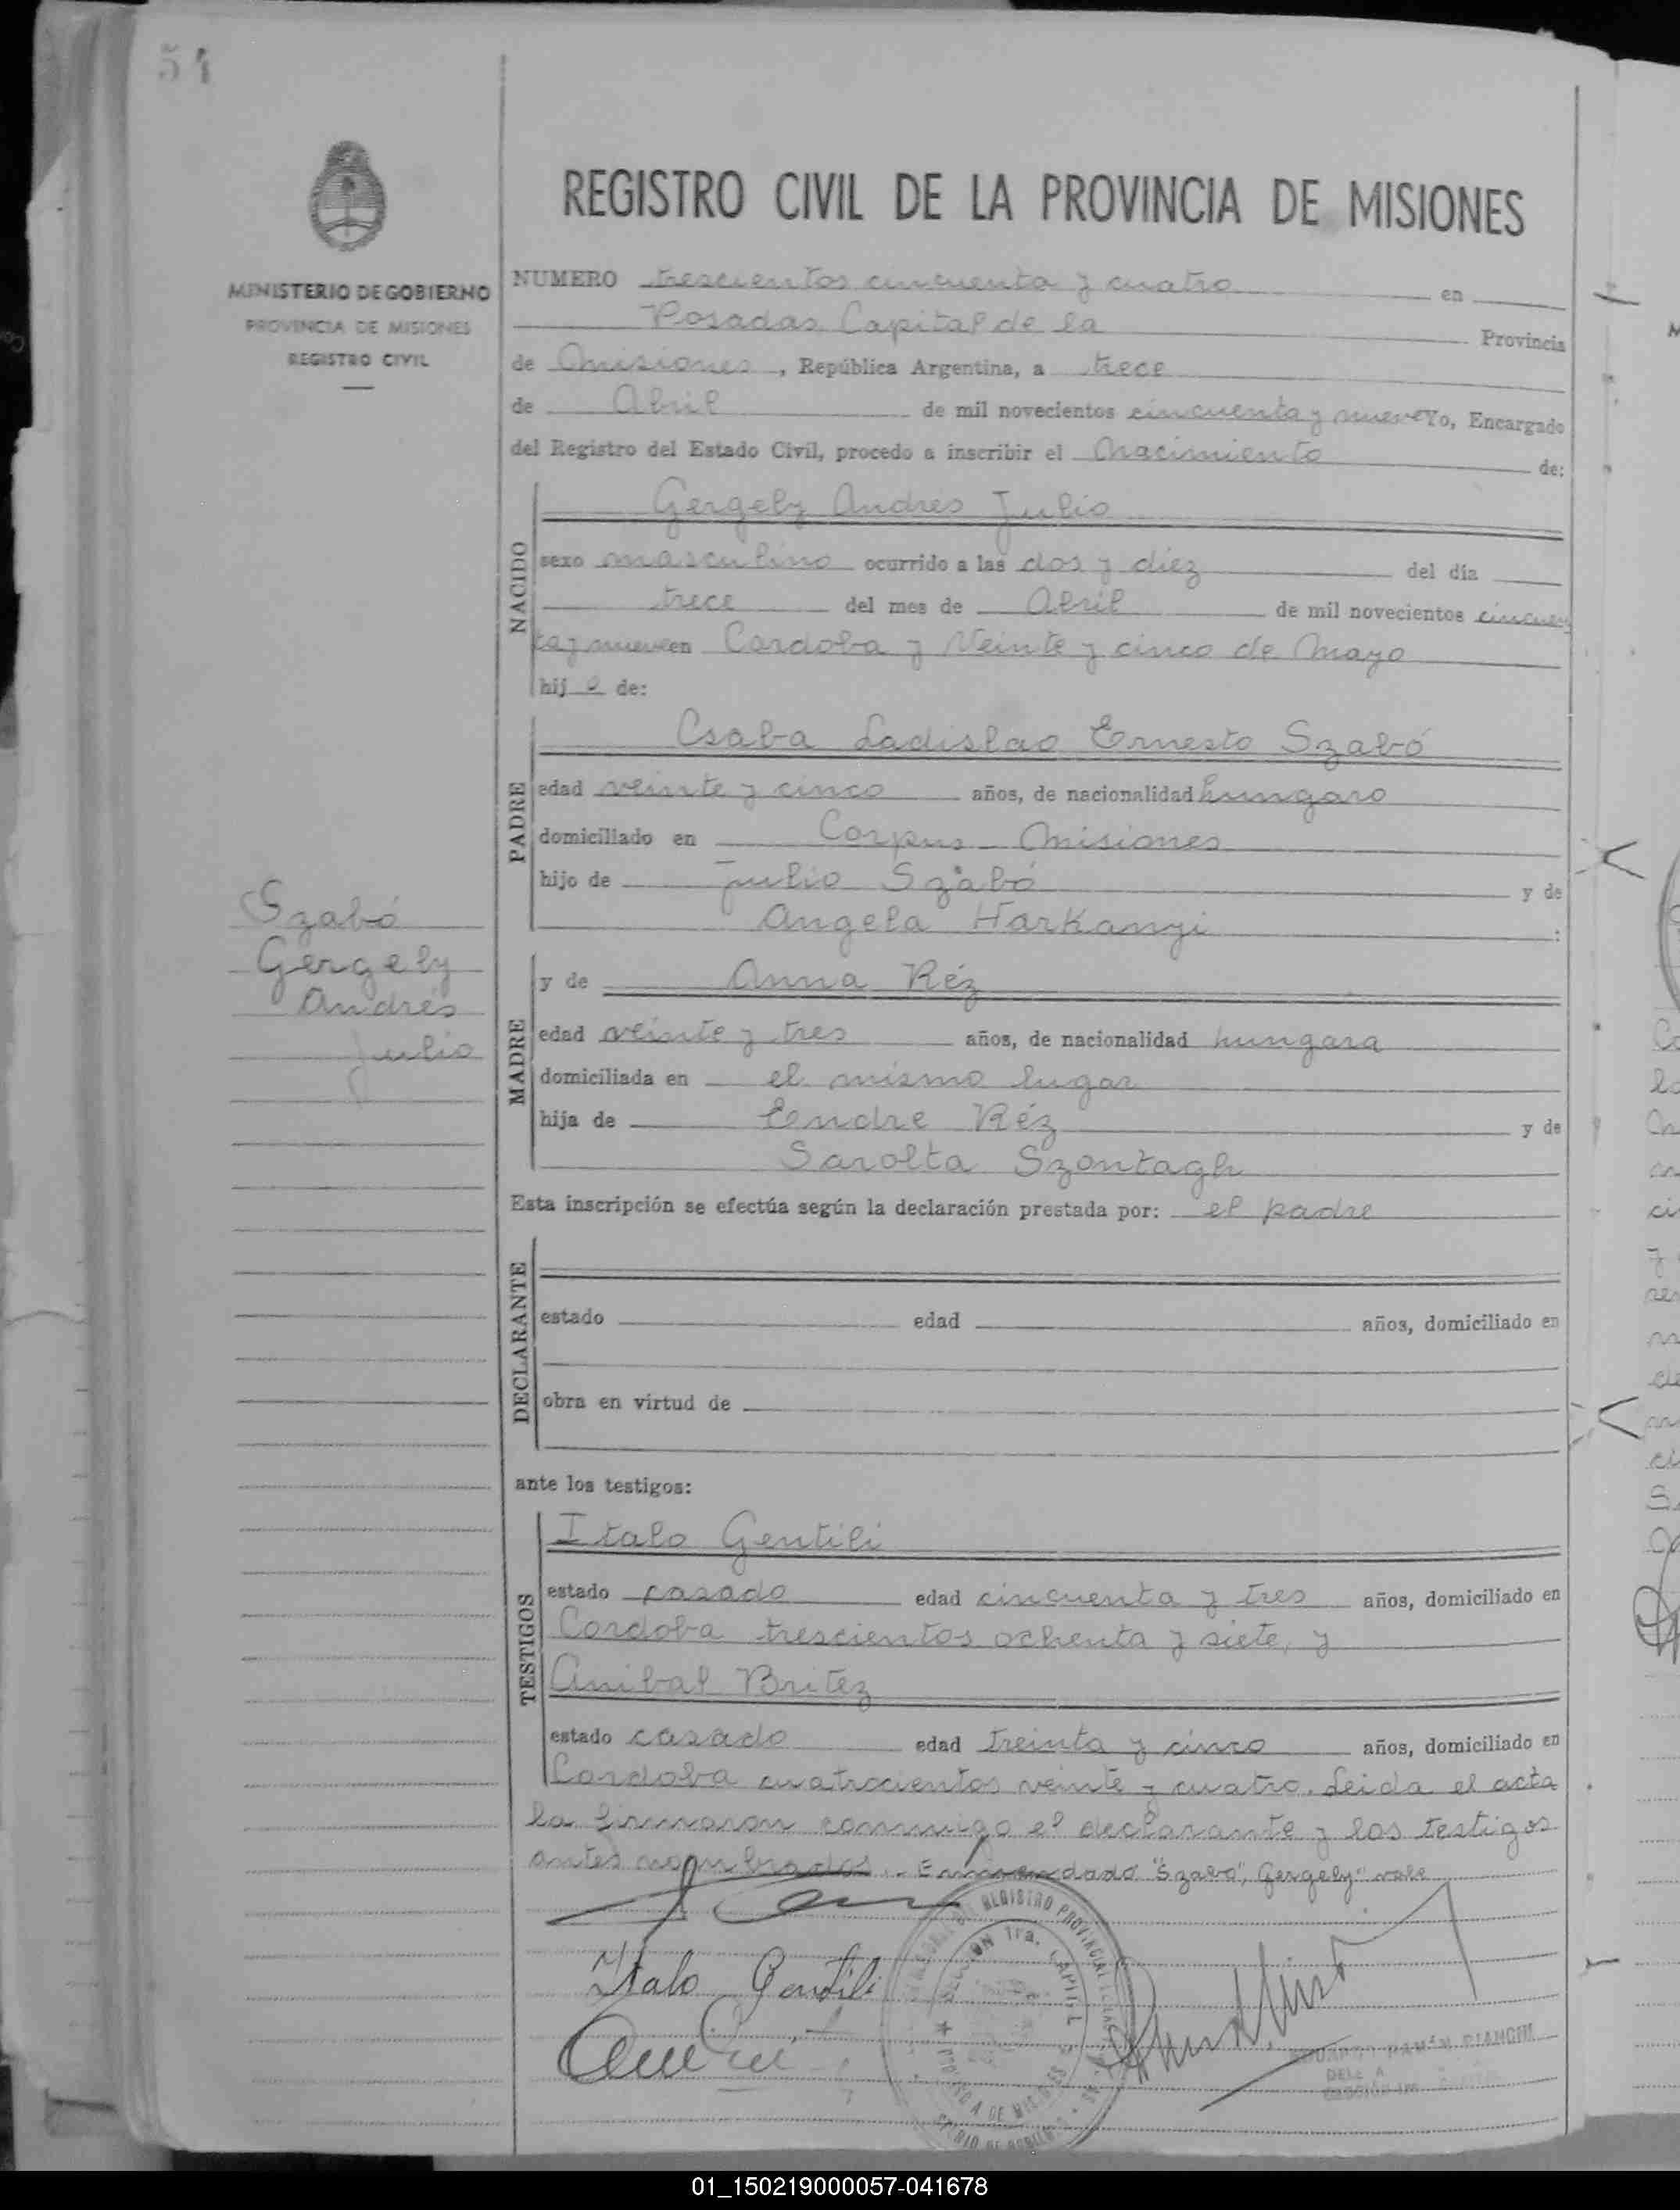 54
MINISTERIO DE GOBIERNO
PROVINCIA DE MISIONES
REGISTRO CIVIL
Szabó
Gergely
Andrés
Julio
REGISTRO CIVIL DE LA PROVINCIA DE MISIONES
NUMERO trescientos cincuenta y cuatro en
Posadas Capital de la Provincia
de Misiones, República Argentina, a trece
de Abril de mil novecientos cincuenta y nueve Yo, Encargado
del Registro del Estado Civil, procedo a inscribir el Nacimiento de:
NACIDO
Gergely Andres Julio
sexo masculino ocurrido a las dos y diez del día
trece del mes de Abril de mil novecientos cincuen
ta y nueve en Cordoba y Veinte y cinco de Mayo
hijo de:
PADRE
Csaba Ladislao Ernesto Szabó
edad veinte y cinco años, de nacionalidad hungaro
domiciliado en Corpus - Misiones
hijo de Julio Szabó y de
Angela Harkanyi :
MADRE
y de Anna Réz
edad veinte y tres años, de nacionalidad hungara
domiciliada en el mismo lugar
hija de Eendre Réz y de
Sarolta Szontagh
Esta inscripción se efectúa según la declaración prestada por: el padre
DECLARANTE
estado edad años, domiciliado en
obra en virtud de
ante los testigos:
TESTIGOS
Italo Gentili
estado casado edad cincuenta y tres años, domiciliado en
Cordoba trescientos ochenta y siete, y
Anibal Britez
estado casado edad treinta y cinco años, domiciliado en
Cordoba cuatrocientos veinte y cuatro. Leida el acta
la firmaron conmigo el declarante y los testigos
antes nombrados.- Enmendado "Szabó", Gergely" vale
Italo Gentili
REGISTRO PROVINCIAL
1ra. CAPITAL
01_150219000057-041678